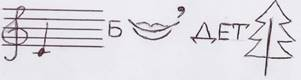 Б ’ ДЕТ